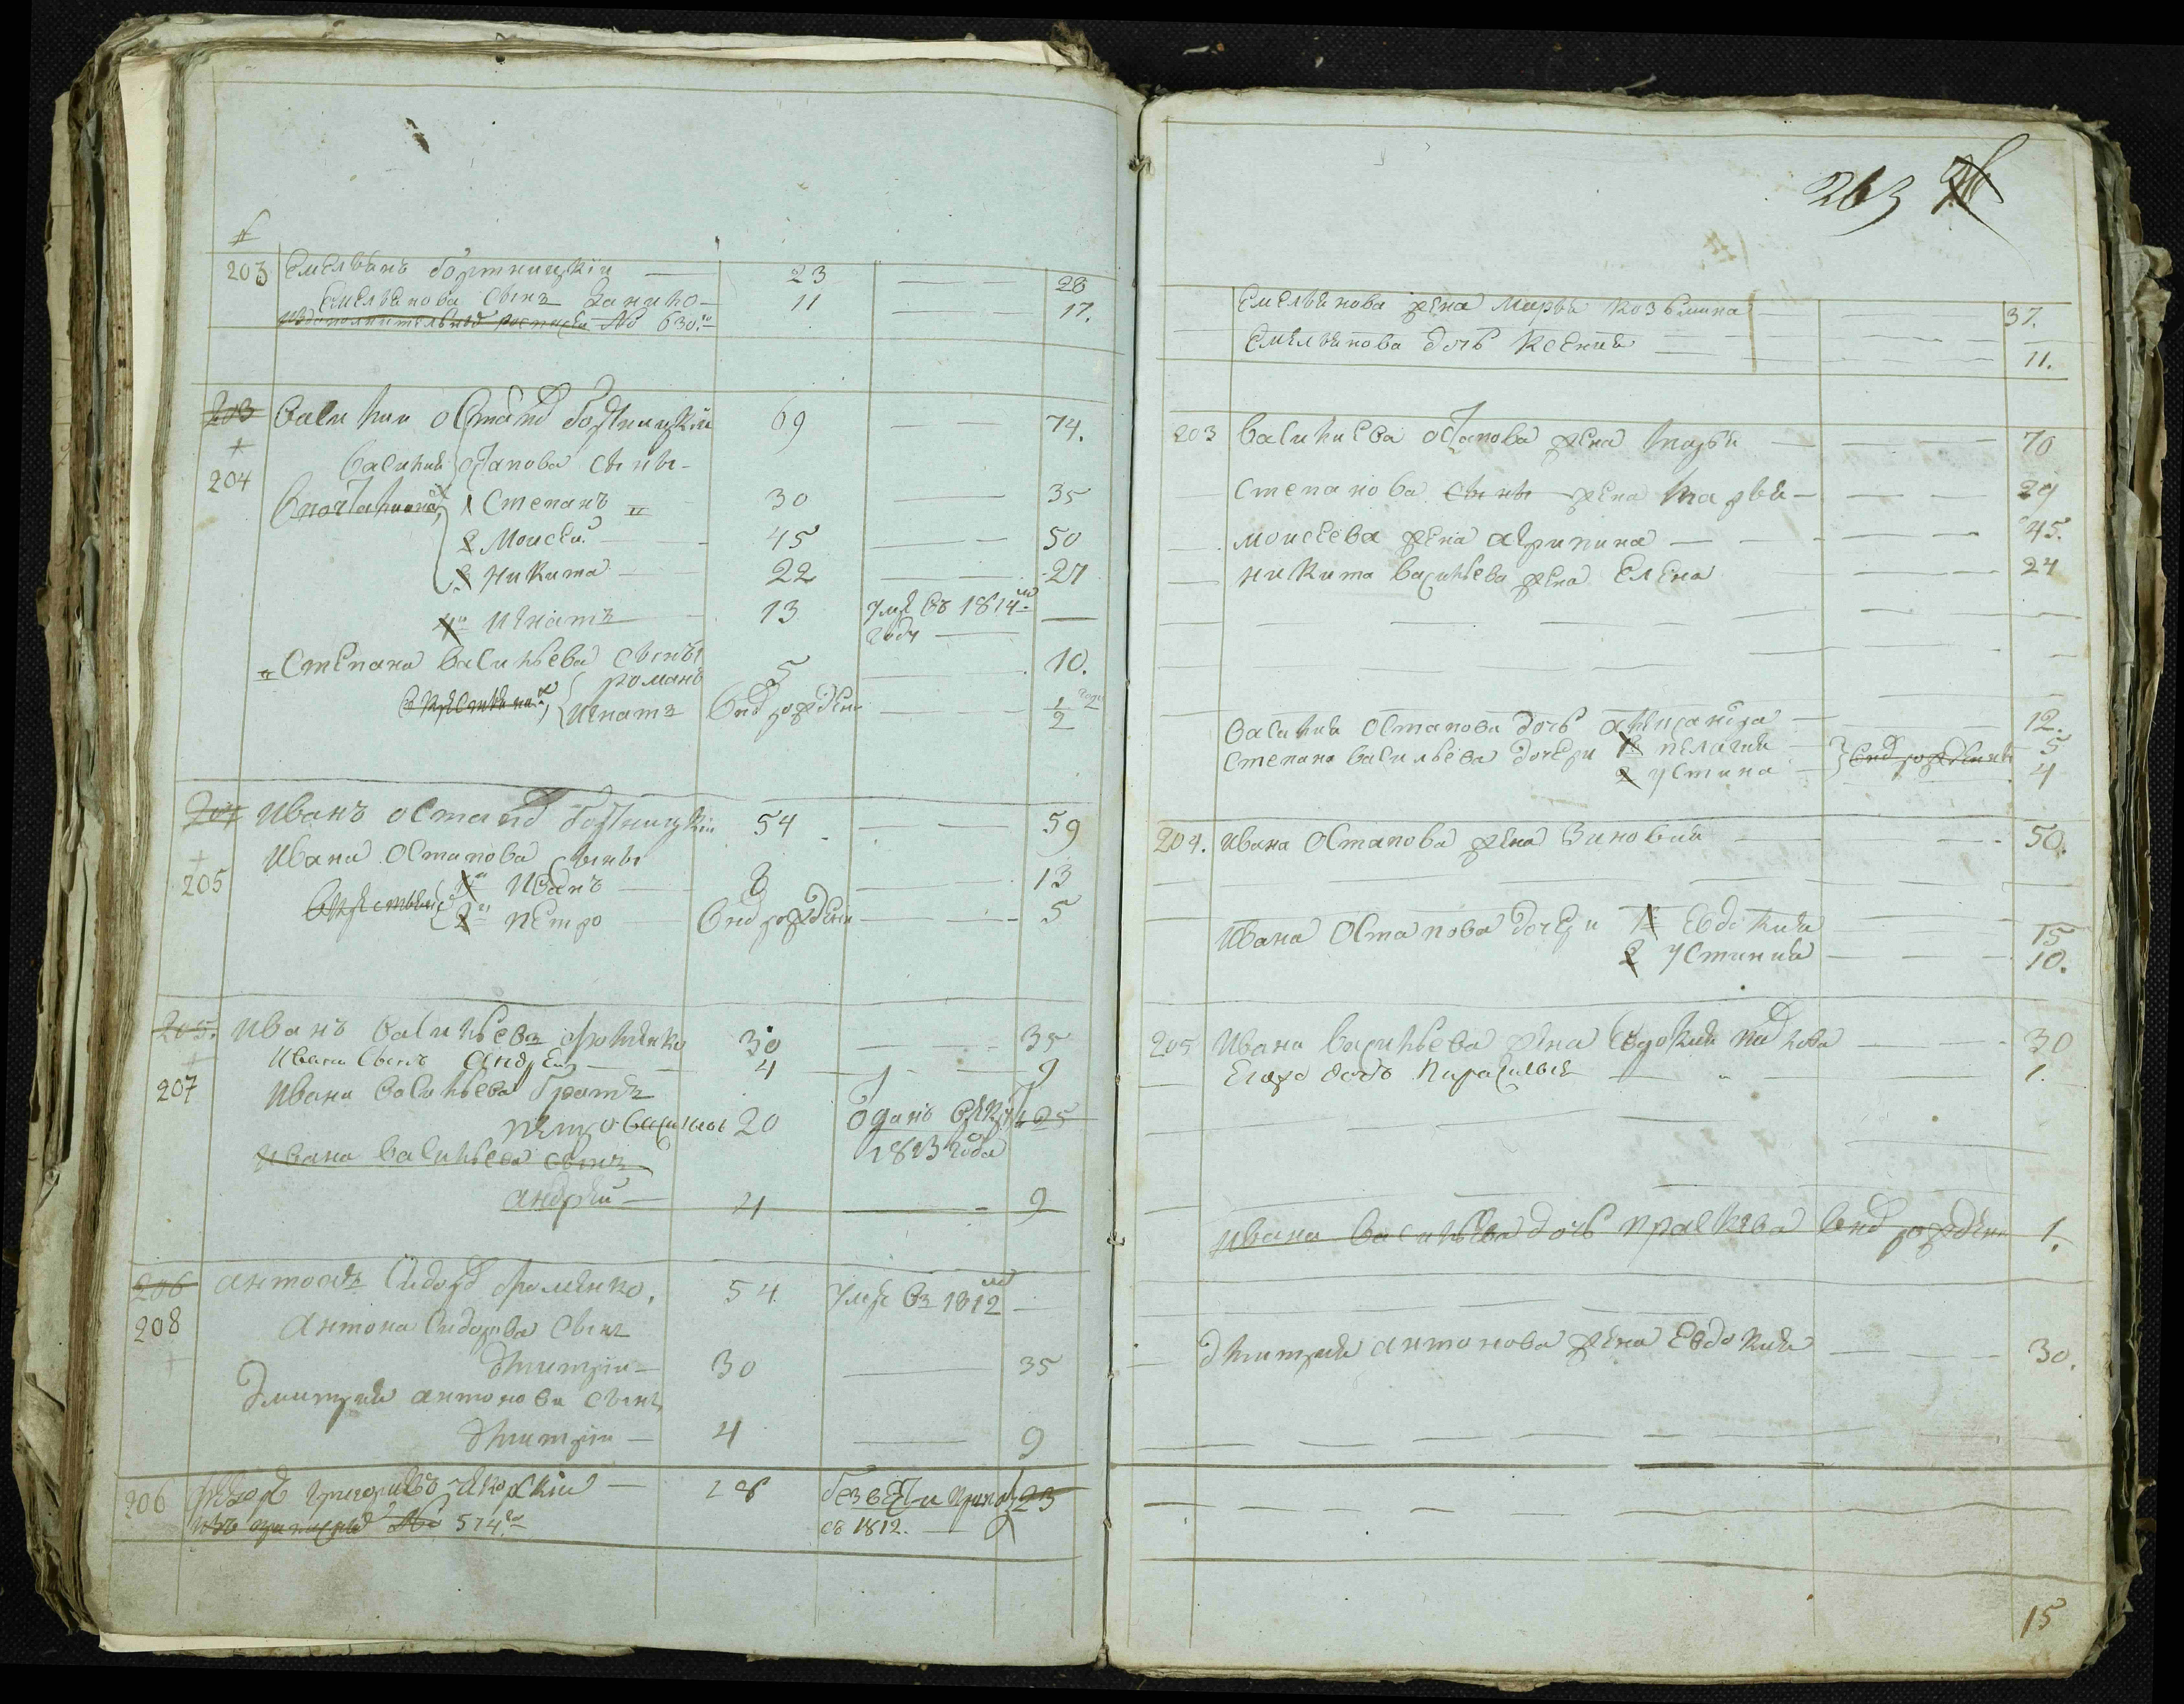 203 Емельянъ Бортницкій — 23 — — — 28
Емельянова сынъ Данило — 11 — — — 17.
изъ дополнительной росписки № 630.го
203 Василии Остапов Бортницкій 69 — — — 74.
+
204 Василия Остапова сыны
1 Степанъ 30 — 35
2 Моисей 45 — 50
3 Никита — 22 — 27
4й Игнатъ — 13 умре въ 1814м —
году —
Степана Васильева сыны
романъ 5 — 10.
Игнатъ внов рожден — ½ года
204 Иванъ Остапов Бортницкій 54 — 59
+
Ивана Остапова сыны
205 1й Иванъ — 8 — 13
2й Петро — внов рожден — 5
205. Иванъ Васильевъ Фоменко 30 — 35
+
Ивана сынъ Андрей — 4 — 9
207 Ивана Васильева братъ
Петро Васильевъ 20 отданъ в рекруты 25
1813 года
Ивана Васильева сынъ
Андрей — 4 — 9
206 Антонъ Сидоров Фоменко, 54 умре въ 1812м —
208 Антона Сидорова сынъ
+
Дмитрии — 30 — 35
Дмитрия Антонова сынъ
Дмитрии — 4 — 9
206 Григорьевъ — 18 без вести 23
№ 574го съ 1812. —
263
Емельянова жена Марья Козьмина — 37.
Емельянова дочь Ксения — 11.
203 Васильева Остапова жена Марья — 70
Степанова сыны жена Марья — 29
Моисеева жена Агрипина — 45.
Никита Васильева жена Елена 24
Василия Остапова дочь Александра — 12.
Степана Васильева дочери 1я Пелагия — внов рожденны 5
2 Устина — 4
204. Ивана Остапова жена Зиновия — 50.
Ивана Остапова дочери 1я Евдокия — 15
2 Устиния — 10.
205 Ивана Васильева жена Евдокия — 30
Егоже дочь Параскевия — 1.
Ивана Васильева дочь Прасковя внов рожден 1.
Дмитрия Антонова жена Евдокия — 30.
15